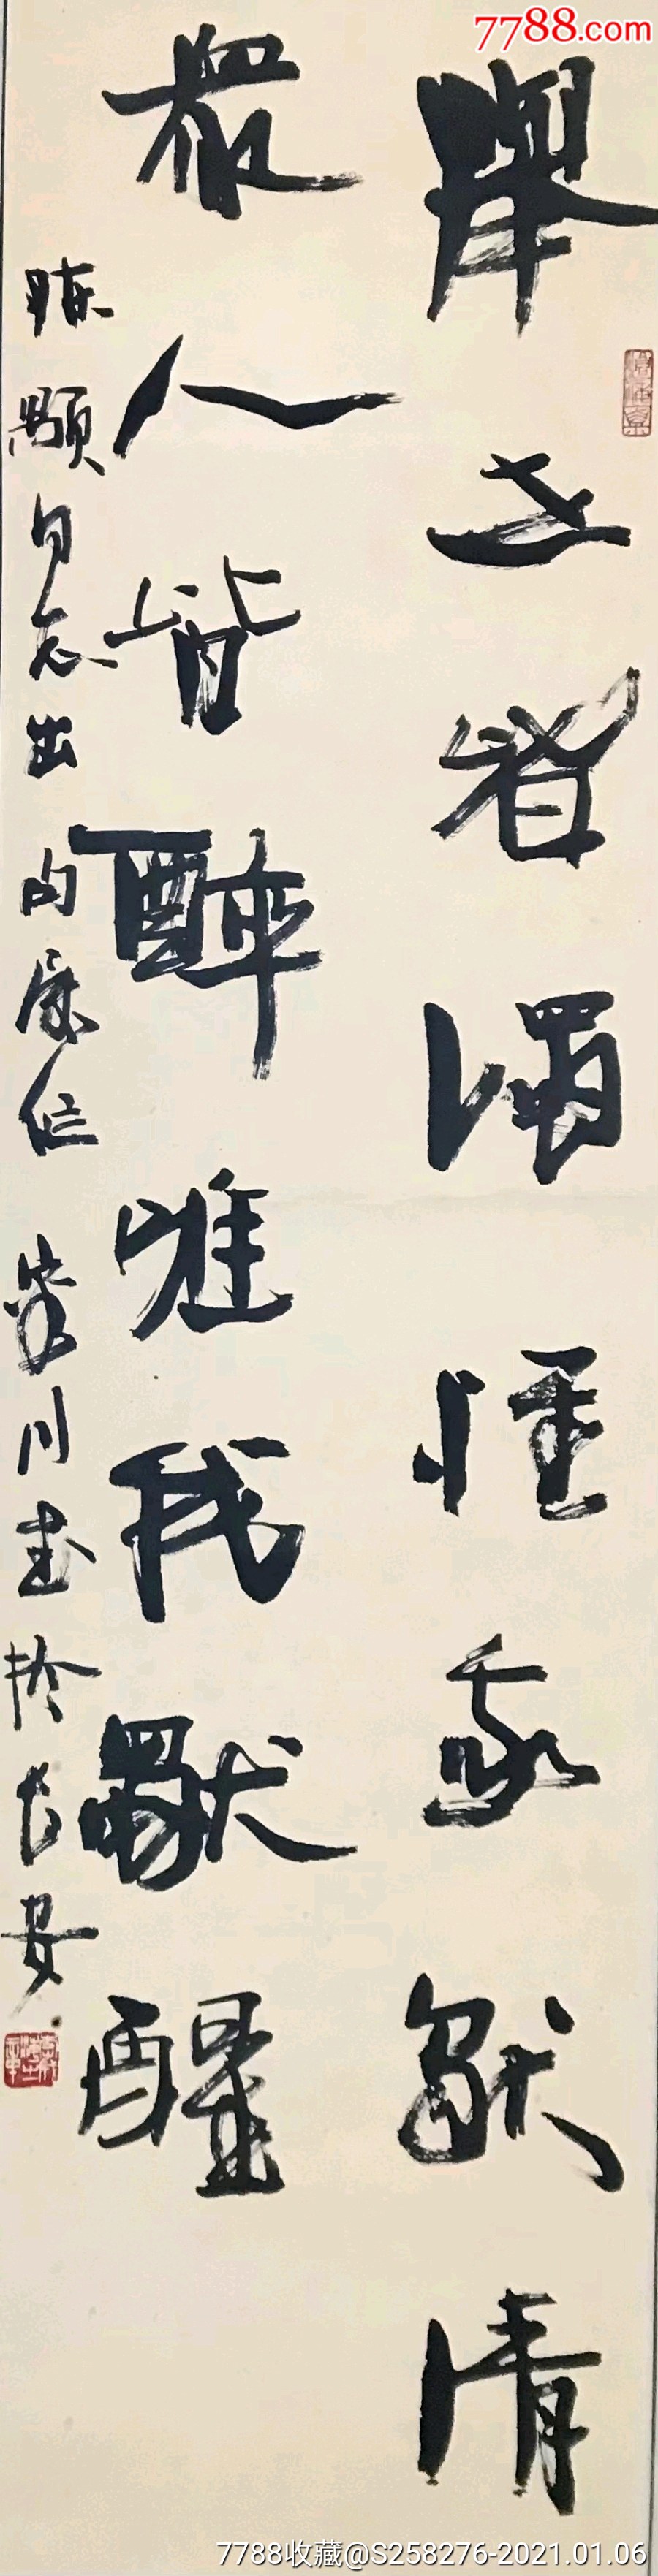 7788.com
舉世皆濁惟我獨清
眾人皆醉唯我獨醒
同志出句 川书於长安
7788收藏@S258276-2021.01.06